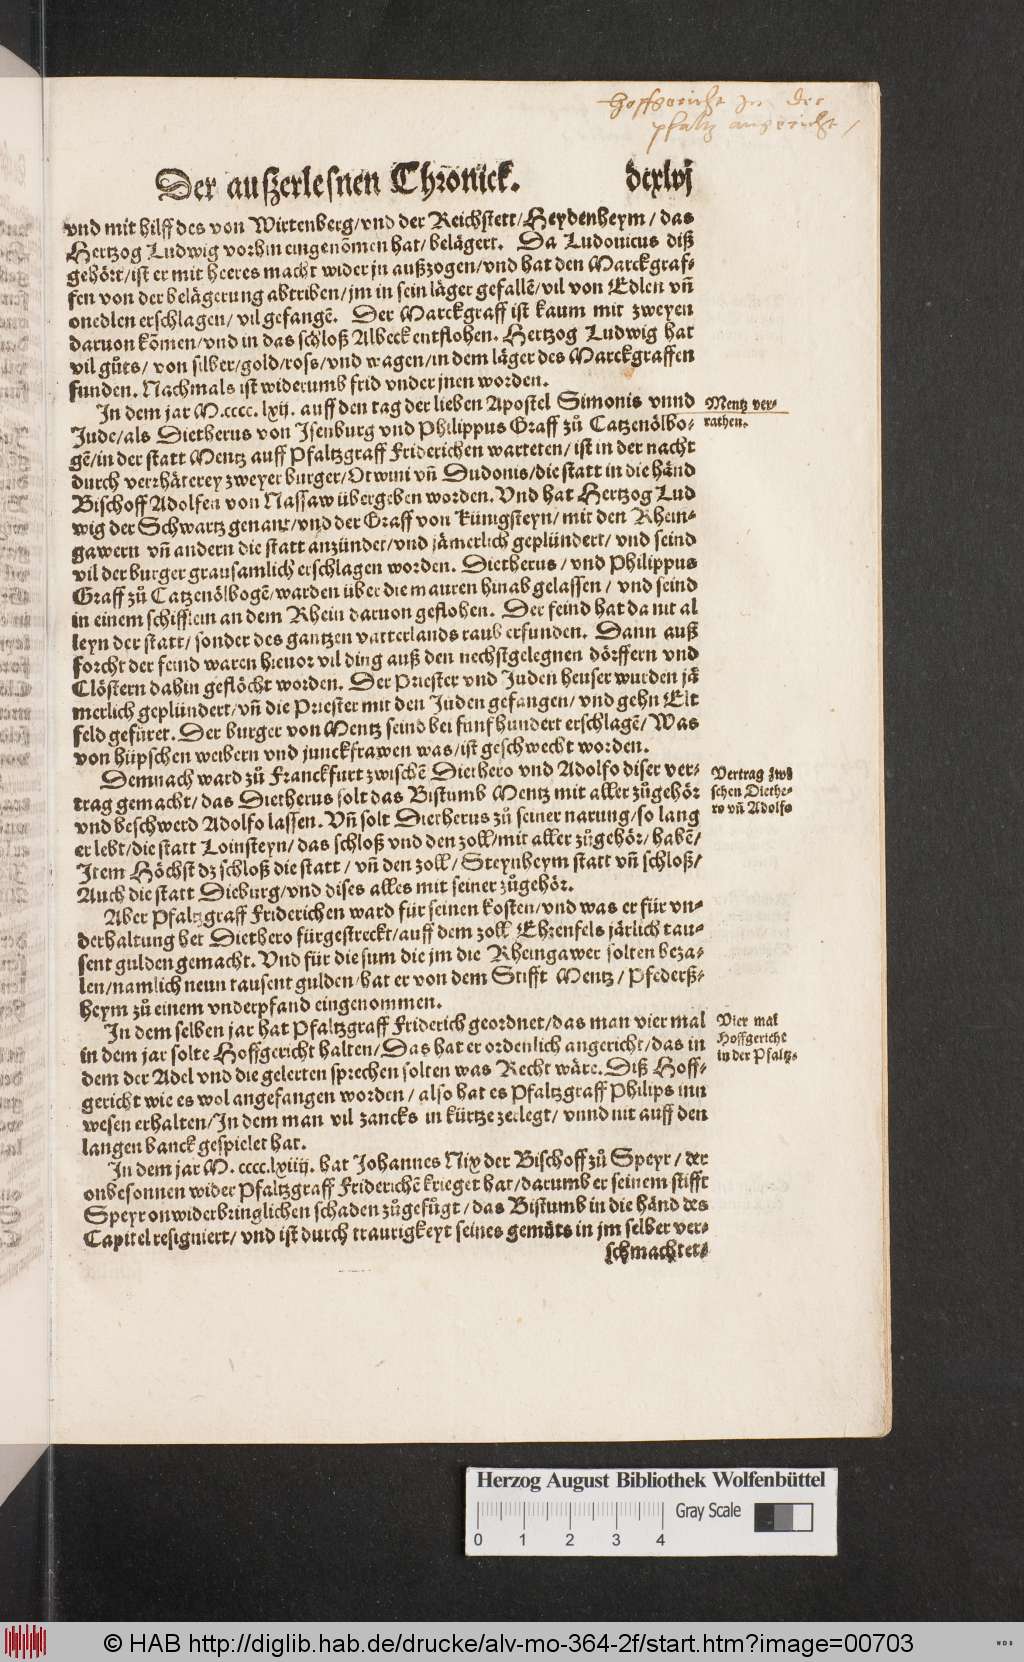 Hoffgericht In der
pfaltz angericht /
Der außerlesnen Chronick. dcxlvj
vnd mit hilff des von Wirtenberg / vnd der Reichstett / Heydenheym / das
Hertzog Ludwig vorhin eingenõmen hat / belägert. Da Ludouicus diß
gehört / ist er mit heeres macht wider jn außzogen / vnd hat den Marckgraf-
fen von der belägerung abtriben / jm in sein läger gefallẽ / vil von Edlen vñ
onedlen erschlagen / vil gefangẽ. Der Marckgraff ist kaum mit zweyen
daruon kõmen / vnd in das schloß Albeck entflohen. Hertzog Ludwig hat
vil gůts / von silber / gold / ross / vnd wagen / in dem läger des Marckgraffen
funden. Nachmals ist widerumb frid vnder jnen worden.
In dem jar M.cccc. lxij. auff den tag der lieben Apostel Simonis vnnd
Jude / als Dietherus von Isenburg vnd Philippus Graff zů Catzenölbo-
gẽ / in der statt Mentz auff Pfaltzgraff Friderichen warteten / ist in der nacht
durch verrhäterey zweyer burger / Otwini vñ Dudonis / die statt in die händ
Bischoff Adolfen von Nassaw übergeben worden. Vnd hat Hertzog Lud
wig der Schwartz genant / vnd der Graff von Künigsteyn / mit den Rhein-
gawern vñ andern die statt anzündet / vnd jämerlich geplündert / vnd seind
vil der burger grausamlich erschlagen worden. Dietherus / vnd Philippus
Graff zů Catzenölbogẽ / warden über die mauren hinab gelassen / vnd seind
in einem schifflein an dem Rhein daruon geflohen. Der feind hat da nit al
leyn der statt / sonder des gantzen vatterlands raub erfunden. Dann auß
forcht der feind waren hieuor vil ding auß den nechstgelegnen dörffern vnd
Clöstern dahin geflöcht worden. Der Priester vnd Juden heuser wurden jä
merlich geplündert / vñ die Priester mit den Juden gefangen / vnd gehn Elt
feld gefüret. Der burger von Mentz seind bei funf hundert erschlagẽ / Was
von hüpschen weibern vnd junckfrawen was / ist geschwecht worden.
Demnach ward zů Franckfurt zwischẽ Diethero vnd Adolfo diser ver-
trag gemacht / das Dietherus solt das Bistumb Mentz mit aller zůgehör
vnd beschwerd Adolfo lassen. Vñ solt Dietherus zů seiner narung / so lang
er lebt / die statt Loinsteyn / das schloß vnd den zoll / mit aller zůgehör / habẽ /
Item Höchst dz schloß die statt / vñ den zoll / Steynheym statt vñ schloß /
Auch die statt Dieburg / vnd dises alles mit seiner zůgehör.
Aber Pfaltzgraff Friderichen ward für seinen kosten / vnd was er für vn-
derhaltung het Diethero fürgestreckt / auff dem zoll Ehrenfels järlich tau-
sent gulden gemacht. Vnd für die sum die jm die Rheingawer solten beza-
len / namlich neun tausent gulden / hat er von dem Stifft Mentz / Pfederß-
heym zů einem vnderpfand eingenommen.
In dem selben jar hat Pfaltzgraff Friderich geordnet / das man vier mal
in dem jar solte Hoffgericht halten / Das hat er ordenlich angericht / das in
dem der Adel vnd die gelerten sprechen solten was Recht wäre. Diß Hoff-
gericht wie es wol angefangen worden / also hat es Pfaltzgraff Philips inn
wesen erhalten / In dem man vil zancks in kürtze zerlegt / vnnd nit auff den
langen banck gespielet hat.
In dem jar M. cccc.lxiiij. hat Johannes Nix der Bischoff zů Speyr / der
onbesonnen wider Pfaltzgraff Friderichẽ krieget hat / darumb er seinem stifft
Speyr onwiderbringlichen schaden zůgefůgt / das Bistumb in die händ des
Capitel resigniert / vnd ist durch traurigkeyt seines gemüts in jm selber ver-
schmachtet-
Mentz ver-
rathen.
Vertrag zwi
schen Diethe-
ro vñ Adolfo
Vier mal
Hoffgericht
in der Pfaltz.
Herzog August Bibliothek Wolfenbüttel
Gray Scale
0 1 2 3 4
© HAB http://diglib.hab.de/drucke/alv-mo-364-2f/start.htm?image=00703